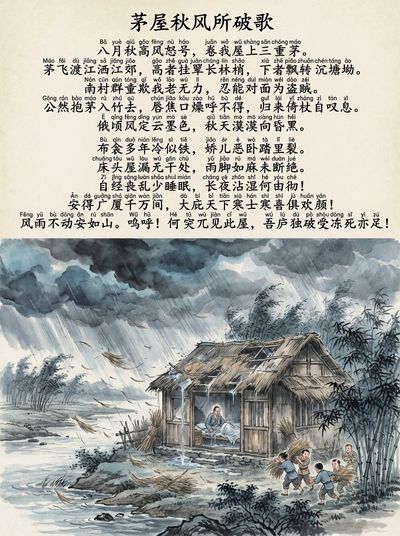 茅屋秋风所破歌
Bā yuè qiū gāo fēng nù háo juǎn wǒ wū shàng sān chóng máo
八月秋高风怒号，卷我屋上三重茅。
Máo fēi dù jiāng jiāng jiāo gāo zhě guà juàn cháng lín shāo xià zhě piāo zhuǎn chén táng
茅飞渡江洒江郊，高者挂罥长林梢，下者飘转 沉塘坳。
Nán cūn qún tóng qī wǒ lǎo wú lì rěn néng duì miàn wéi dào zéi
南村群童欺我老无力，忍能对面为盗贼。
Gōng rán bào máo rù zhú qù chún jiāo kǒu zào hū bù dé guī lái yǐ zhàng zì tàn xī
公然抱茅入竹去，唇焦口燥呼不得，归来倚杖自叹息。
É qǐng fēng dìng yún mò sè qiū tiān mò mò xiàng hūn hēi
俄顷风定云墨色，秋天漠漠向昏黑。
Bù qīn duō nián lěng sì tiě jiāo ér è wò tà lǐ liè
布衾多年冷似铁，娇儿恶卧踏里裂。
chuáng tóu wū lòu wú gān chù yǔ jiǎo rú má wèi duàn jué
床头屋漏无干处，雨脚如麻未断绝。
Zì jīng sāng luàn shǎo shuì mián cháng yè zhān shī hé yóu chè
自经丧乱少睡眠，长夜沾湿何由彻！
Ān dé guǎng shà qiān wàn jiān dà tiān xià hán shì jù huān yán
安得广厦千万间，大庇天下寒士寒喜俱欢颜！
Fēng yǔ bù dòng ān rú shān Wū hū Hé wù jiàn cǐ wū wú lú dú pò shòu dòng sǐ yì zú
风雨不动安如山。呜呼！何突兀见此屋，吾庐独破受冻死亦足！